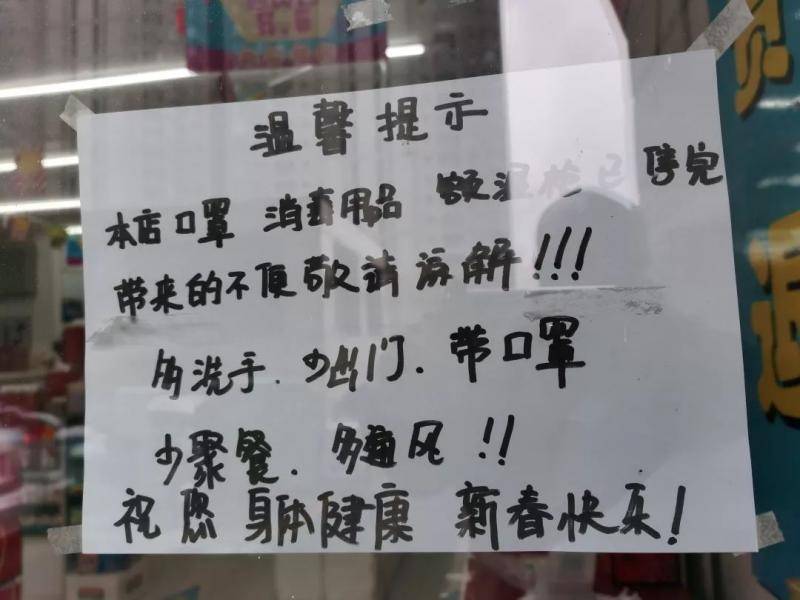 温馨提示
本店口罩 消毒用品 额温枪已售完
带来的不便敬请谅解!!!
多洗手.少出门.带口罩
少聚餐.多通风!!
祝愿身体健康 新春快乐!